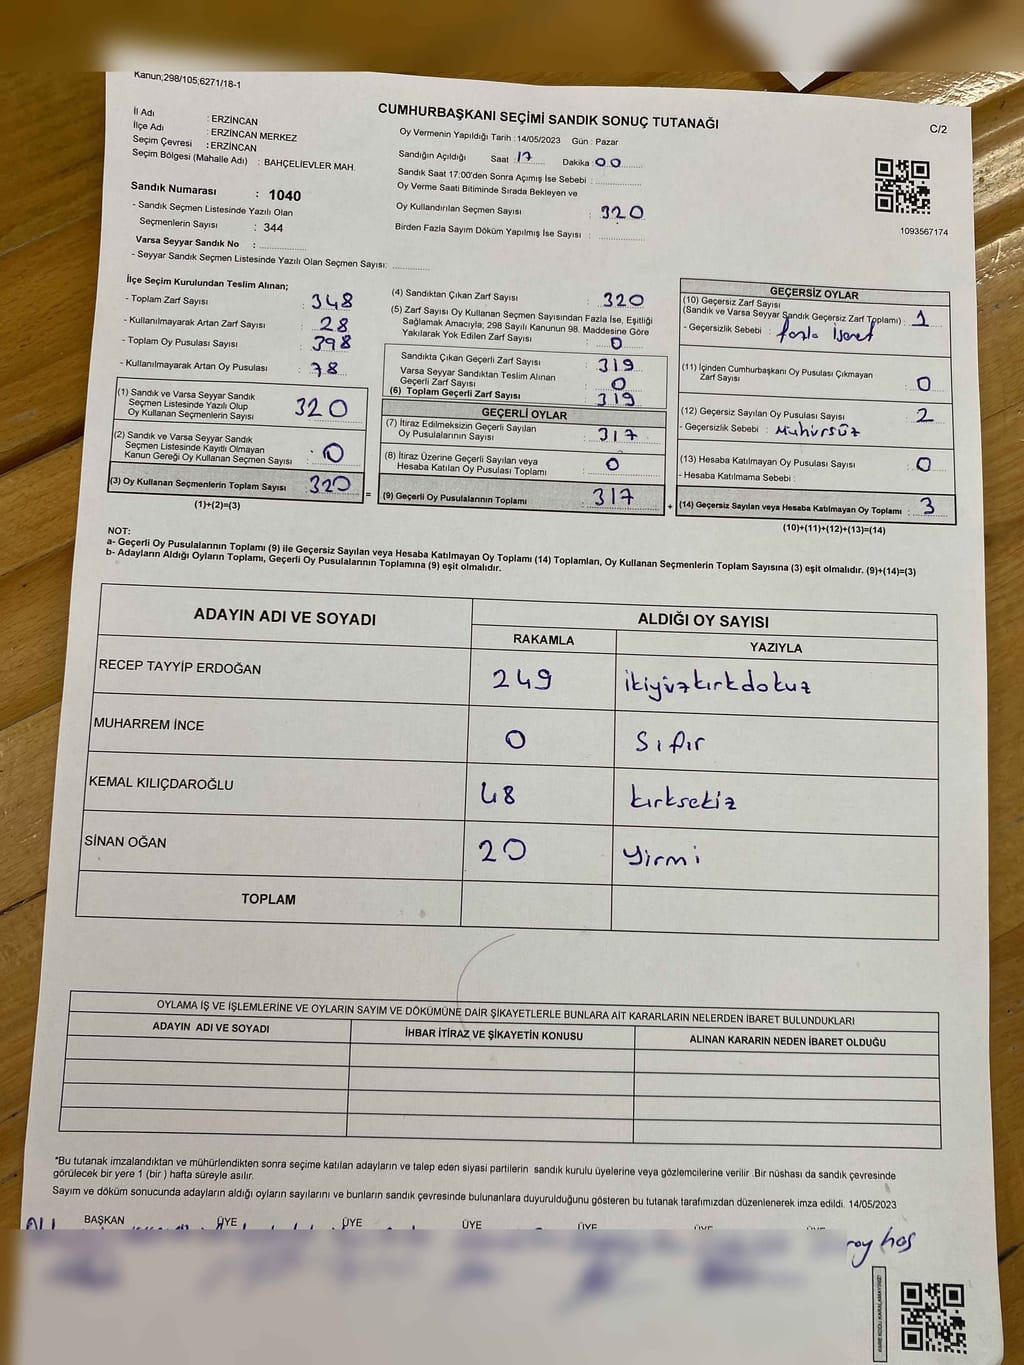 Kanun;298/105;6271/18-1
CUMHURBAŞKANI SEÇİMİ SANDIK SONUÇ TUTANAĞI
C/2
İl Adı : ERZİNCAN
İlçe Adı : ERZİNCAN MERKEZ
Seçim Çevresi : ERZİNCAN
Seçim Bölgesi (Mahalle Adı) : BAHÇELİEVLER MAH.
Sandık Numarası : 1040
- Sandık Seçmen Listesinde Yazılı Olan
Seçmenlerin Sayısı : 344
Varsa Seyyar Sandık No : ............
- Seyyar Sandık Seçmen Listesinde Yazılı Olan Seçmen Sayısı: ............
Oy Vermenin Yapıldığı Tarih : 14/05/2023 Gün : Pazar
Sandığın Açıldığı Saat : 17 Dakika : 00
Sandık Saat 17:00'den Sonra Açımış İse Sebebi : ............
Oy Verme Saati Bitiminde Sırada Bekleyen ve
Oy Kullandırılan Seçmen Sayısı : 320
Birden Fazla Sayım Döküm Yapılmış İse Sayısı : ............
1093567174
İlçe Seçim Kurulundan Teslim Alınan;
- Toplam Zarf Sayısı : 348
- Kullanılmayarak Artan Zarf Sayısı : 28
- Toplam Oy Pusulası Sayısı : 398
- Kullanılmayarak Artan Oy Pusulası : 78
(1) Sandık ve Varsa Seyyar Sandık
Seçmen Listesinde Yazılı Olup
Oy Kullanan Seçmenlerin Sayısı 320
(2) Sandık ve Varsa Seyyar Sandık
Seçmen Listesinde Kayıtlı Olmayan
Kanun Gereği Oy Kullanan Seçmen Sayısı : 0
(3) Oy Kullanan Seçmenlerin Toplam Sayısı : 320
(1)+(2)=(3)
=
(4) Sandıktan Çıkan Zarf Sayısı : 320
(5) Zarf Sayısı Oy Kullanan Seçmen Sayısından Fazla İse, Eşitliği
Sağlamak Amacıyla; 298 Sayılı Kanunun 98. Maddesine Göre
Yakılarak Yok Edilen Zarf Sayısı : 0
Sandıkta Çıkan Geçerli Zarf Sayısı : 319
Varsa Seyyar Sandıktan Teslim Alınan
Geçerli Zarf Sayısı : 0
(6) Toplam Geçerli Zarf Sayısı : 319
GEÇERLİ OYLAR
(7) İtiraz Edilmeksizin Geçerli Sayılan
Oy Pusulalarının Sayısı : 317
(8) İtiraz Üzerine Geçerli Sayılan veya
Hesaba Katılan Oy Pusulası Toplamı : 0
(9) Geçerli Oy Pusulalarının Toplamı : 317
+
GEÇERSİZ OYLAR
(10) Geçersiz Zarf Sayısı
(Sandık ve Varsa Seyyar Sandık Geçersiz Zarf Toplamı) : 1
- Geçersizlik Sebebi : fazla işaret
(11) İçinden Cumhurbaşkanı Oy Pusulası Çıkmayan
Zarf Sayısı : 0
(12) Geçersiz Sayılan Oy Pusulası Sayısı : 2
- Geçersizlik Sebebi : Mühürsüz
(13) Hesaba Katılmayan Oy Pusulası Sayısı : 0
- Hesaba Katılmama Sebebi :
(14) Geçersiz Sayılan veya Hesaba Katılmayan Oy Toplamı : 3
(10)+(11)+(12)+(13)=(14)
NOT:
a- Geçerli Oy Pusulalarının Toplamı (9) ile Geçersiz Sayılan veya Hesaba Katılmayan Oy Toplamı (14) Toplamları, Oy Kullanan Seçmenlerin Toplam Sayısına (3) eşit olmalıdır. (9)+(14)=(3)
b- Adayların Aldığı Oyların Toplamı, Geçerli Oy Pusulalarının Toplamına (9) eşit olmalıdır.
ADAYIN ADI VE SOYADI ALDIĞI OY SAYISI
RAKAMLA YAZIYLA
RECEP TAYYİP ERDOĞAN 249 ikiyüzkırkdokuz
MUHARREM İNCE 0 Sıfır
KEMAL KILIÇDAROĞLU 48 kırksekiz
SİNAN OĞAN 20 yirmi
TOPLAM
OYLAMA İŞ VE İŞLEMLERİNE VE OYLARIN SAYIM VE DÖKÜMÜNE DAİR ŞİKAYETLERLE BUNLARA AİT KARARLARIN NELERDEN İBARET BULUNDUKLARI
ADAYIN ADI VE SOYADI İHBAR İTİRAZ VE ŞİKAYETİN KONUSU ALINAN KARARIN NEDEN İBARET OLDUĞU
*Bu tutanak imzalandıktan ve mühürlendikten sonra seçime katılan adayların ve talep eden siyasi partilerin sandık kurulu üyelerine veya gözlemcilerine verilir .Bir nüshası da sandık çevresinde
görülecek bir yere 1 (bir ) hafta süreyle asılır.
Sayım ve döküm sonucunda adayların aldığı oyların sayılarını ve bunların sandık çevresinde bulunanlara duyurulduğunu gösteren bu tutanak tarafımızdan düzenlenerek imza edildi. 14/05/2023
BAŞKAN ÜYE ÜYE ÜYE ÜYE ÜYE ÜYE